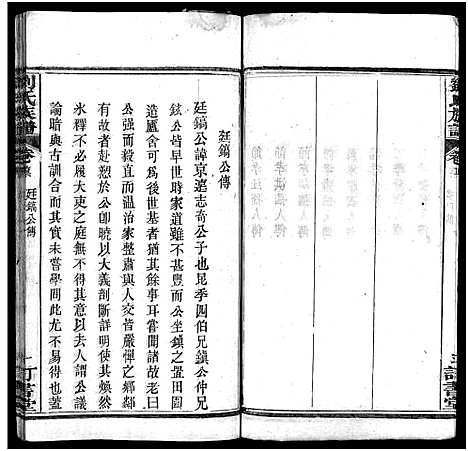 廷鎬公傳
廷鎬公諱京遠志奇公子也昆季四伯兄鎮公仲兄
鉉公皆早世時家道雖不甚豐而公坐鎮之置田園
造廬舍可久爲後世基者猶其餘事耳嘗聞諸故老曰
公强而毅直而溫治家整肅與人交皆嚴憚之鄉鄰
有故者赴愬於公卽曉以大義剖斷詳明使其煥然
氷釋不必履大吏之庭無不得其意以去人謂公議
論暗與古訓合而其實未嘗學問此尤不易得也蓋
劉氏族譜
卷
廷鎬公傳
一
詩書堂
劉氏族譜
卷
詩書堂